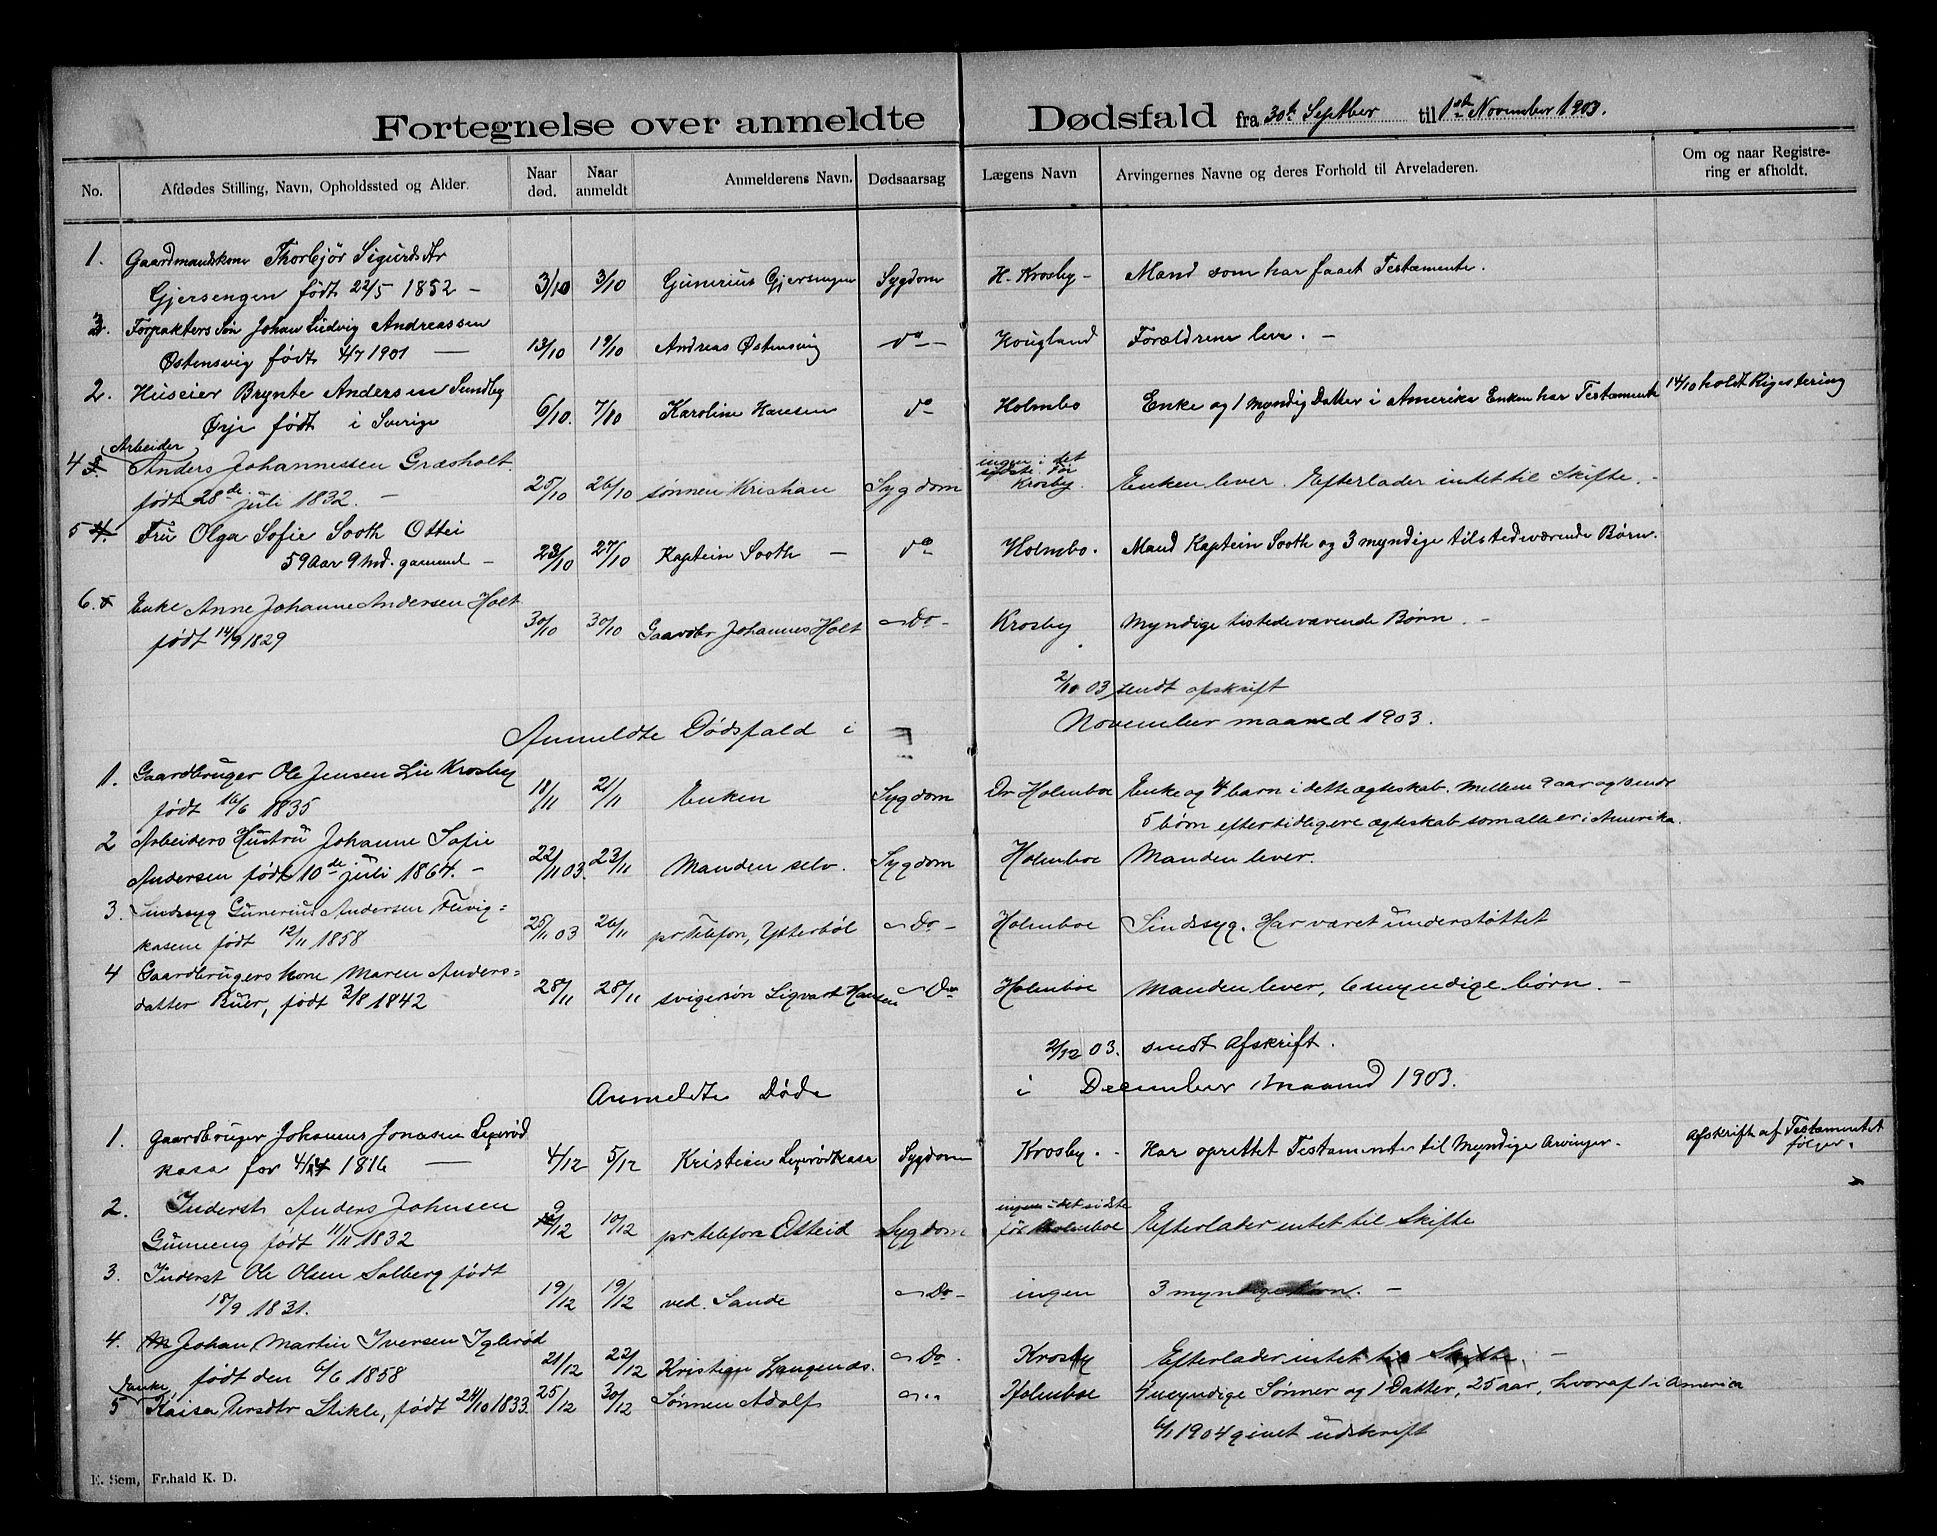 Fortegnelse over anmeldte Dødsfald fra 30te Septber til 1ste November 1903.
No. Afdødes Stilling, Navn, Opholdssted og Alder. Naar død. Naar anmeldt Anmelderens Navn. Dødsaarsag Lægens Navn Arvingernes Navne og deres Forhold til Arveladeren. Om og naar Registrering er afholdt.
1. Gaardmandskone Thorbjør Sigurdsdtr
Gjersengen født 22/5 1852 – 3/10 3/10 Gunerius Gjersengen Sygdom H. Krosby – Mand som har faaet Testamente.
3. Forpakters Søn Johan Ludvig Andreassen
Østensvig født 4/7 1901 — 13/10 19/10 Andreas Østensvig do – Hougland Forældrene leve. –
2. Huseier Brynte Andersen Sundby
Ørje født i Sverige 6/10. 7/10 Karoline Hansen do Holmbo Enke og 1 myndig Datter i Amerika Enken har Testamente 14/10 holdt Rigestering
Arbeider
4 Anders Johannessen Græsholt
født 28de juli 1832. – 25/10 26/10 sønnen Kristian Sygdom ingen i det sidste før Krosby. Enken lever. Efterlader intet til Skifte. –
5 4. Fru Olga Sofie Sooth Ottei
59 Aar 9 Md. gammel – 23/10 27/10 Kaptein Sooth – do Holmbo. Mand Kaptein Sooth og 3 myndige tilstedeværende Børn.
6. Enke Anne Johanne Andersen Holt
født 14/9 1829 30/10 30/10 Gaardbr Johannes Holt Do – Krosby Myndige tistedeværende Børn. –
2/10 03 sendt afskrift
Anmeldte Dødsfald i November maaned 1903.
1. Gaardbruger Ole Jensen Lie Krosby
født 16/6 1835 18/11 21/11 Enken Sygdom Dr Holmboe Enke og 4 barn i dette ægteskab. Mellem 9 aar og
5 børn efter tidligere ægteskab som alle er i Amerika.
2 Arbeiders Hustru Johanne Sofie
Andersen født 10de juli 1864. – 22/11 03. 23/11 Manden selv. Sygdom Holmboe Manden lever.
3. Sindssyg Gunerius Andersen
kasene født 12/11 1858 25/11 03 26/11 pr Telefon, Ytterbøl Do – Holmboe Sindssyg. Har været understøttet
4 Gaardbrugers kone Maren Anders=
datter Buer, født 3/8 1842 28/11 28/11 svigersøn Sigvart Hansen Do Holmboe Manden lever, 6 myndige børn. –
2/12 03. sendt Afskrift.
Anmeldte Døde i December Maaned 1903.
1. Gaardbruger Johannes Jonasen
kasa før 1816 — 4/12 5/12 Kristian Sygdom Krosby. Har oprettet Testamente til Myndige Arvinger. Afskrift af Testamentet følger.
2. Inderst Anders Johnsen
Gunneng født 11/11 1832 9/12 10/12 pr telefon Osteid Sygdom ingen i det sidste før Holmboe Efterlader intet til Skifte
3. Inderst Ole Olsen Solberg født
18/9 1831. 19/12 19/12 ved. Sande Do – ingen 3 myndige Børn. –
4. Johan Martin Iversen Iglerød
født den 6/6 1858 21/12 22/12 Kristian Langenæs. Do. Krosby Efterlader intet til Skifte. –
Enke,
5 Kaisa Persdtr Stikle, født 24/10 1833. 25/12 30/12 Sønnen Adolf Holmboe 4 myndige Sønner og 1 Datter, 25 aar, hvoraf 1 i America
6/1 1904 givet udskrift
E. Sem, Fr.hald K. D.